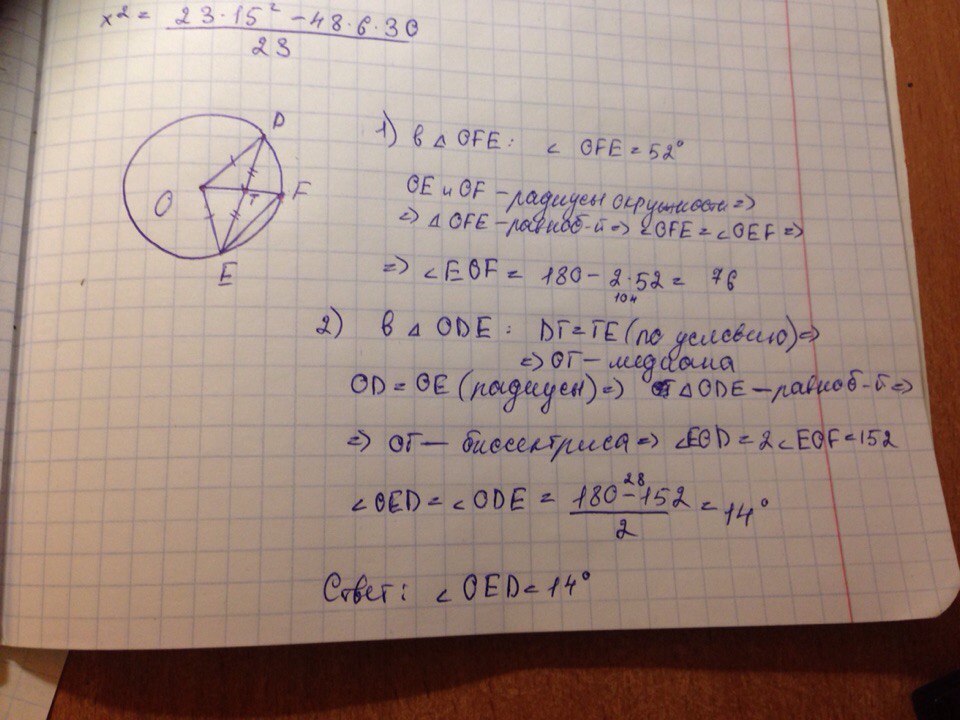 x² = 23·15² − 48·6·30
23
D
O
T
F
E
1) в △ OFE: ∠ OFE = 52°
OE и OF – радиусы окружности ⇒
⇒ △ OFE – равноб-й ⇒ ∠OFE = ∠OEF ⇒
⇒ ∠EOF = 180 − 2·52 = 76
104
2) в △ ODE: DT = TE (по условию) ⇒
⇒ OT – медиана
OD = OE (радиусы) ⇒ △ ODE – равноб-й ⇒
⇒ OT – биссектриса ⇒ ∠EOD = 2∠EOF = 152
28
∠OED = ∠ODE = 180 − 152 = 14°
2
Ответ: ∠ OED = 14°